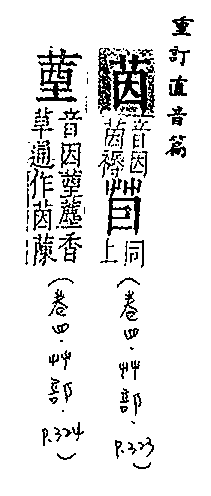 重訂直音篇
茵
音因
茵褥
同
上
(卷四.艸部.P.323)
音因 香
草通作茵蔯
(卷四.艸部.P.324)